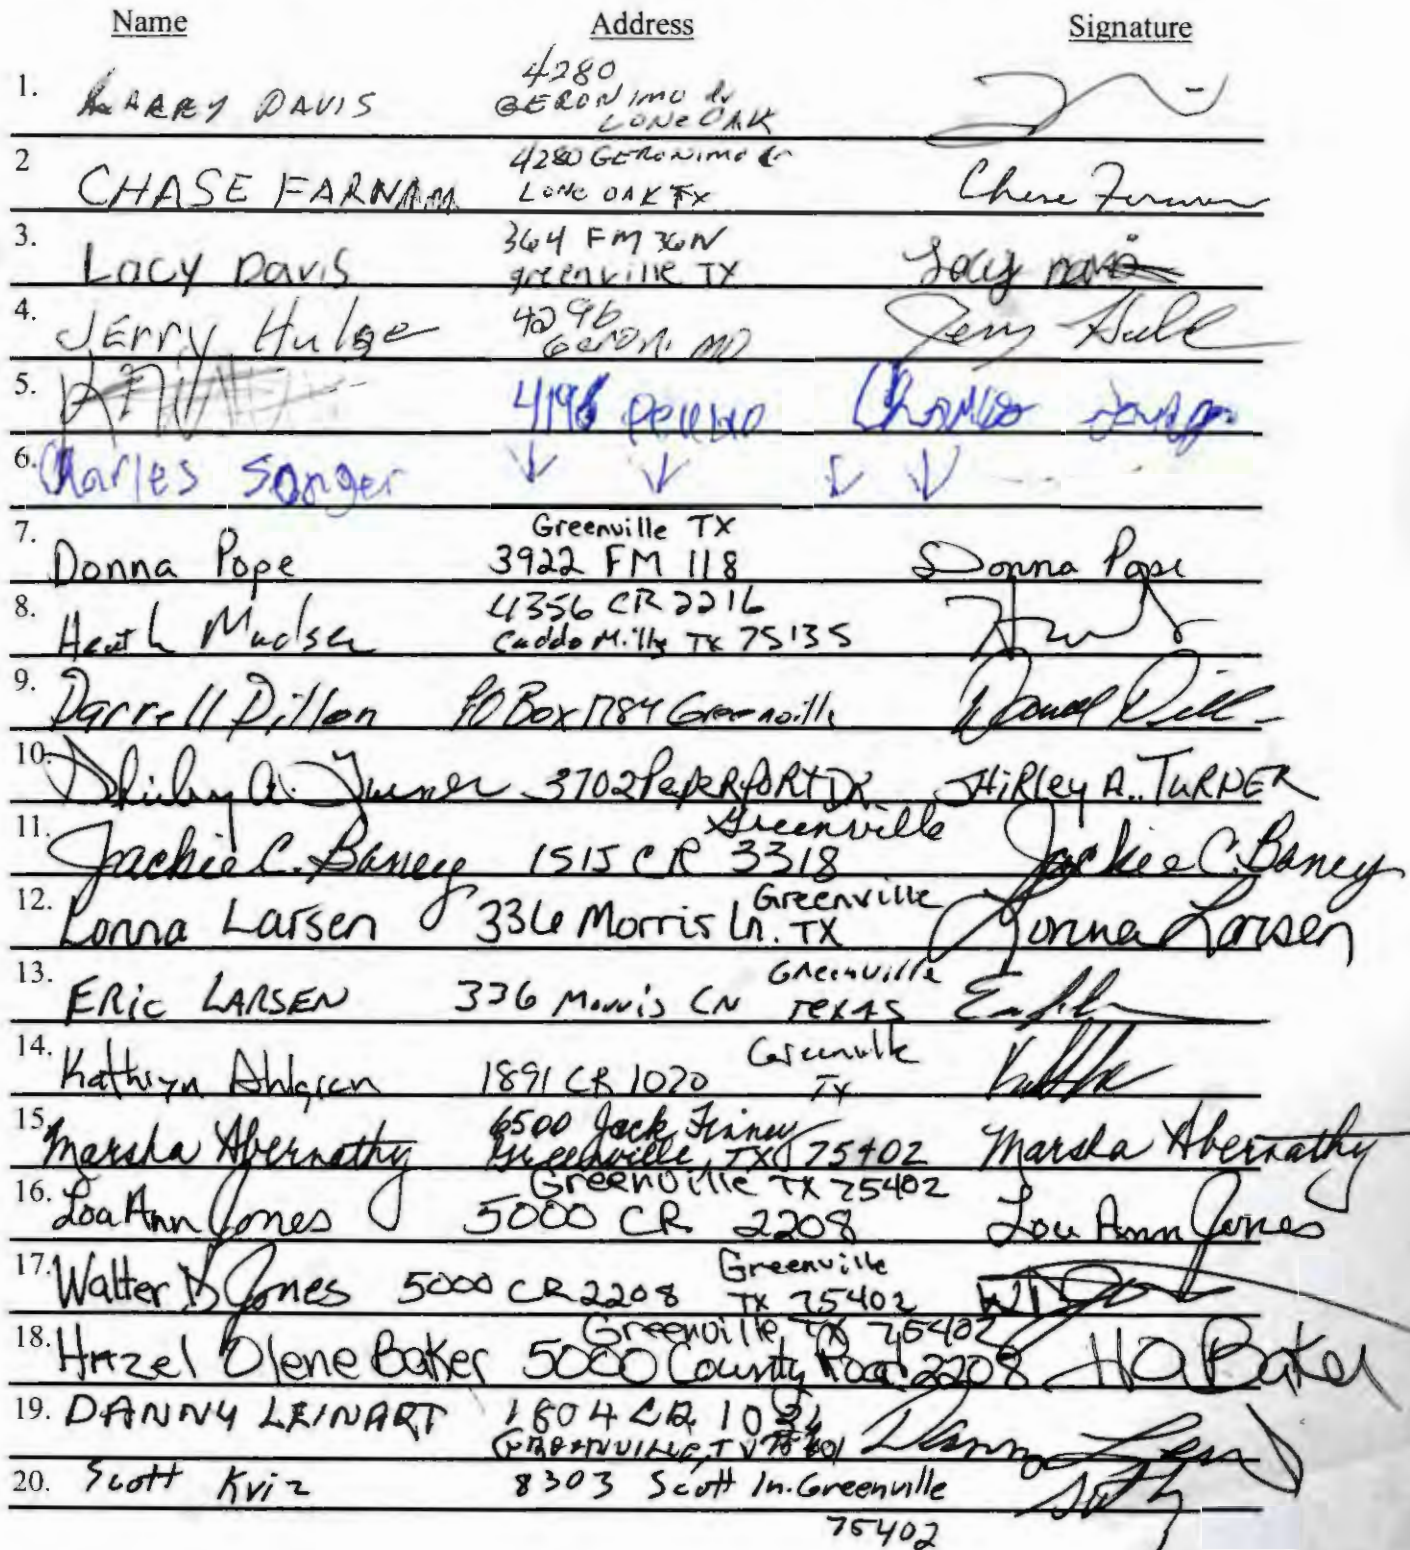 Name Address Signature
1. LARRY DAVIS 4280
GERONIMO Dr
LONE OAK
2 CHASE FARNAM 4280 GERONIMO Dr
LONE OAK TX Chase
3. Lacy Davis 364 FM 36N
greenville TX Lacy Davis
4. JErry Hulse 4296
GerOni MO Jerry
5. 4196 Charles
6. Charles Songer
7. Donna Pope Greenville TX
3922 FM 118 Donna Pope
8. Heath Madsen 4356 CR 2216
Caddo Mills TX 75135
9. Darrell Dillon PO Box 1784 Greenville Darrell Dill
10. Shirley A. Turner 3702 PepeRpORT DR SHiRley A. TuRNER
Greenville
11. Jackie C. Baney 1515 CR 3318 Jackie C. Baney
12. Lonna Larsen 336 Morris Ln. Greenville
TX Lonna Larsen
13. ERic LARSEN 336 Morris LN Greenville
TEXAS
14. Kathryn Ahlgren 1891 CR 1070 Greenville
TX
15. Marsha Abernathy 6500 Jack Finney
Greenville, TX 75402 Marsha Abernathy
Greenville TX 75402
16. Lou Ann Jones 5000 CR 2208 Lou Ann Jones
17. Walter D Jones 5000 CR 2208 Greenville
TX 75402
Greenville TX 75402
18. Hazel Olene Baker 5000 County Road 2208 HO Baker
19. DANNY LEINART 1804 CR 1021
GREENVILLE, TX 75401 Danny
20. Scott Kviz 8303 Scott ln. Greenville
75402